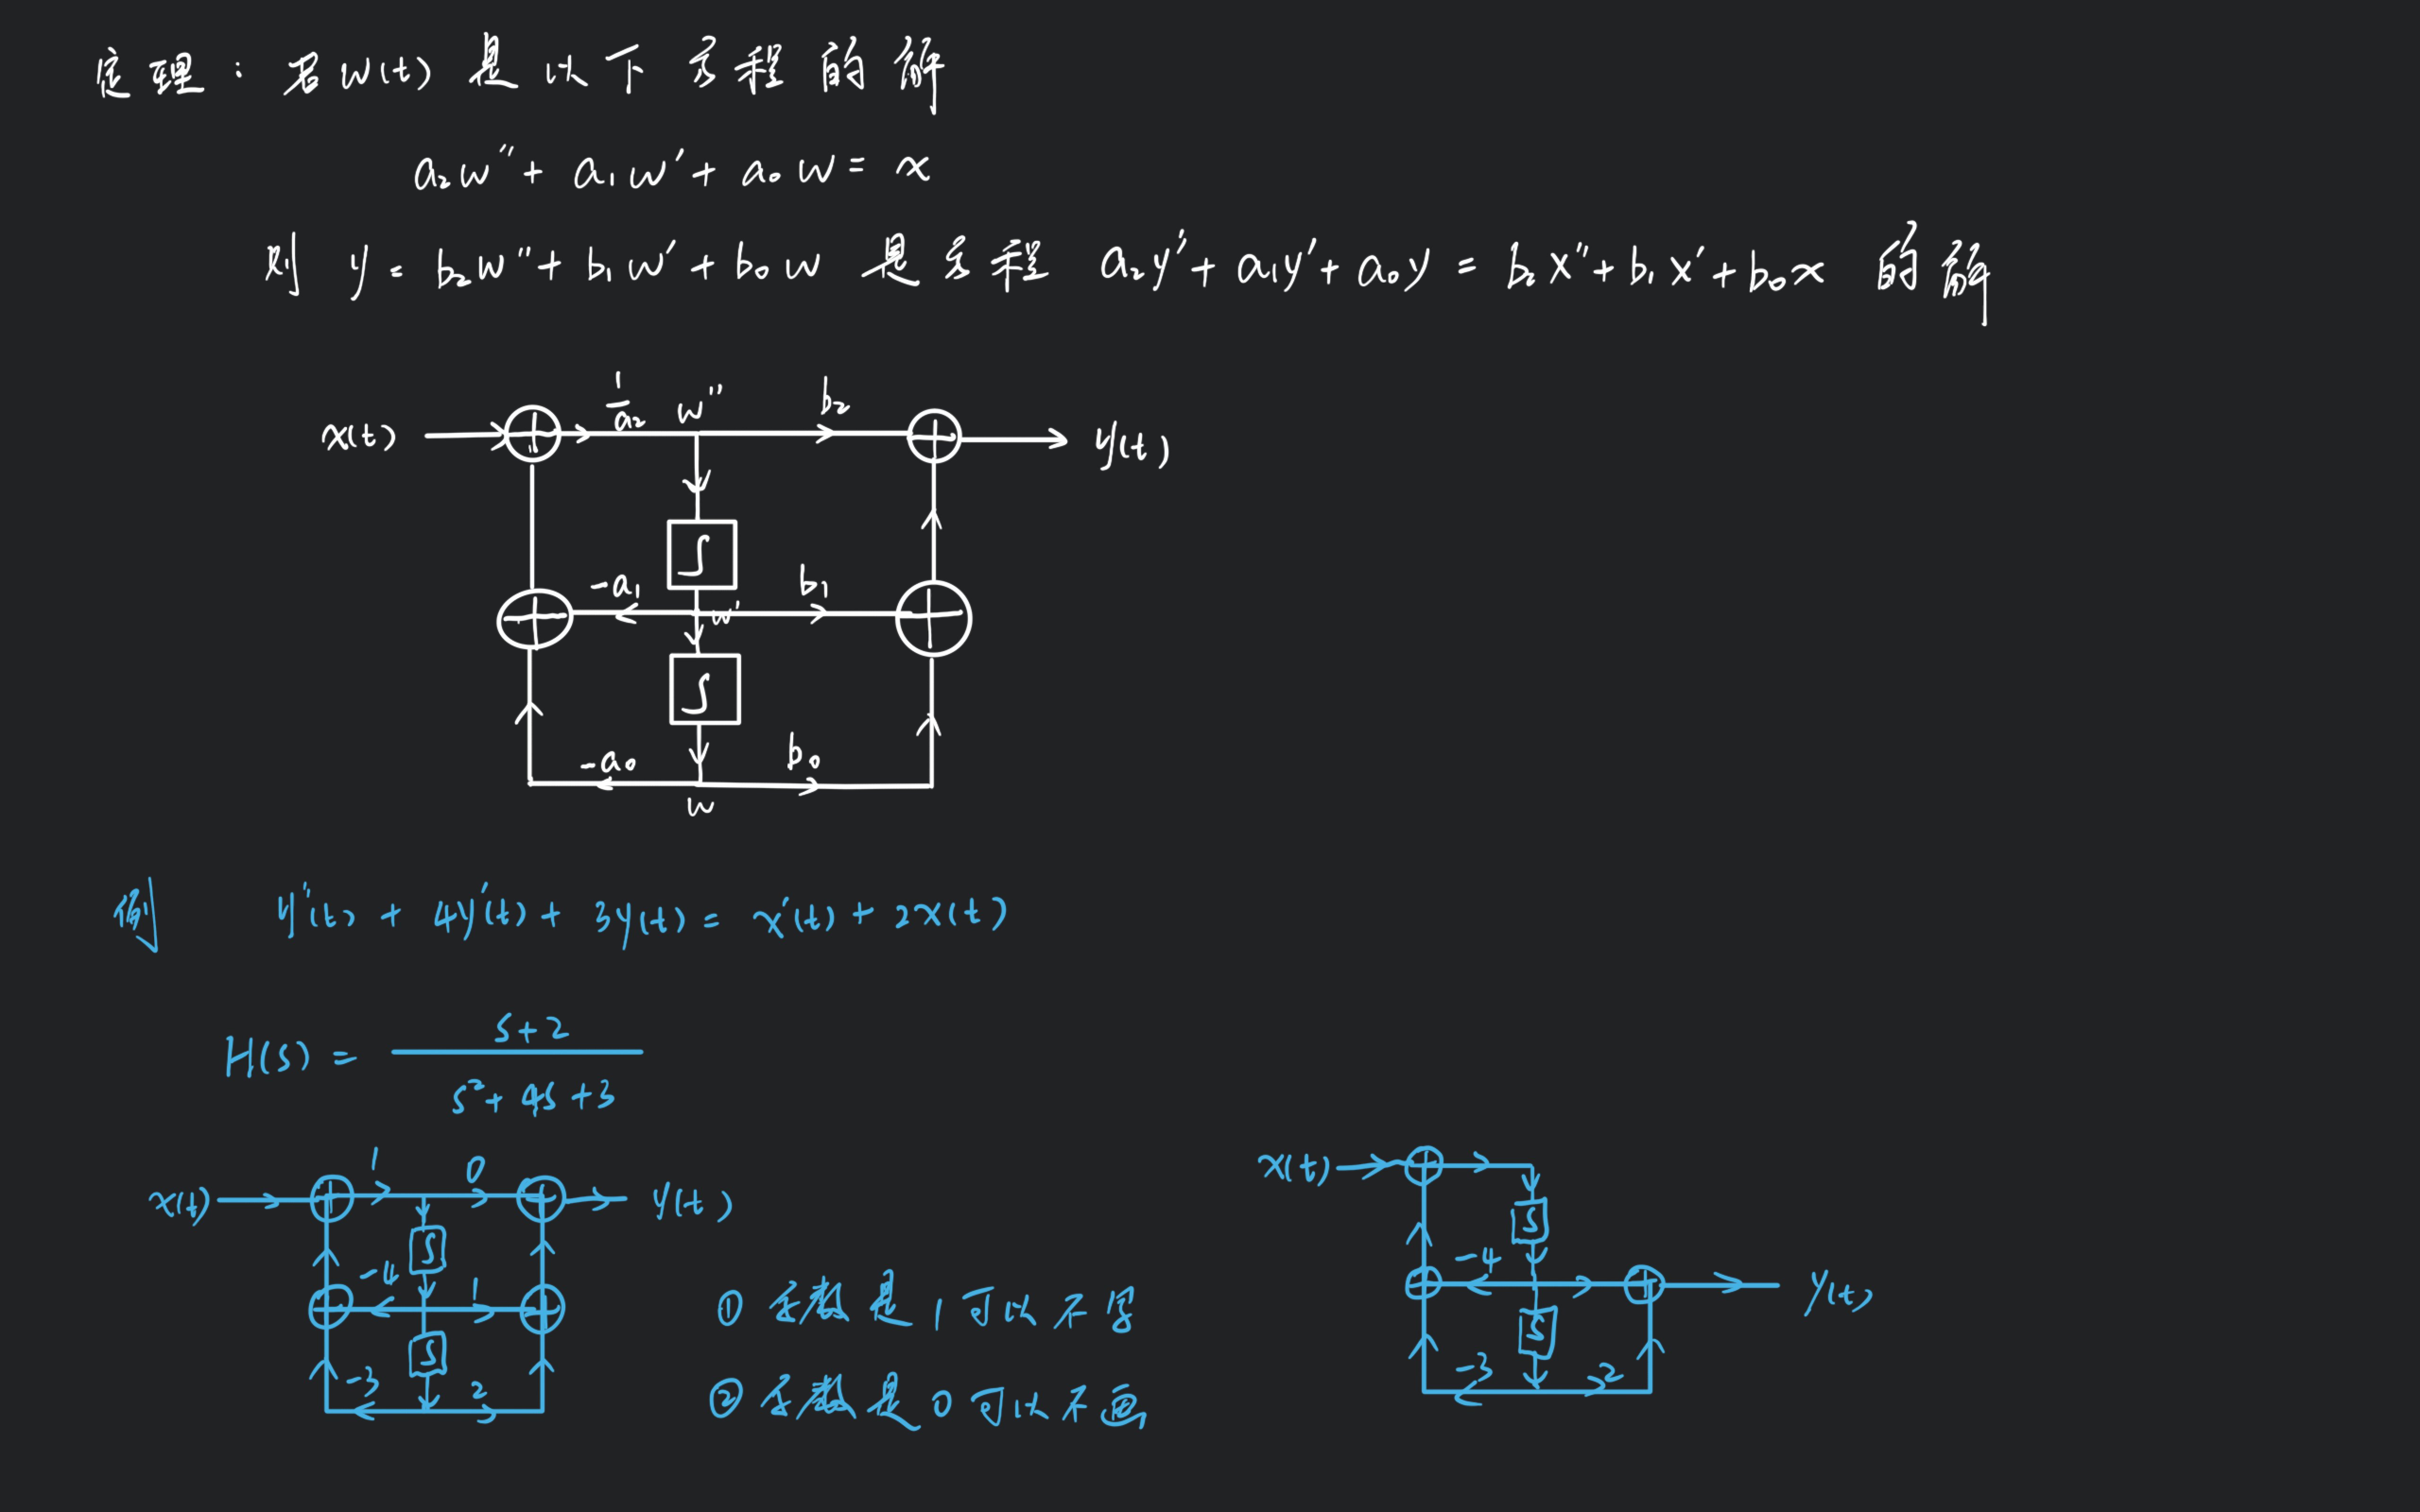 定理：若w(t) 是以下方程的解
a₂w″ + a₁w′ + a₀w = x
则 y = b₂w″ + b₁w′ + b₀w 是方程 a₂y″ + a₁y′ + a₀y = b₂x″ + b₁x′ + b₀x 的解
x(t) 1/a₂ w″ b₂ y(t)
∫
-a₁ w′ b₁
∫
-a₀ b₀
w
例 y″(t) + 4y′(t) + 3y(t) = x′(t) + 2x(t)
H(s) = (s+2)/(s²+4s+3)
x(t) 1 0 y(t)
∫
-4 1
∫
-3 2
① 系数是1可以不写
② 系数是0可以不画
x(t)
∫
-4 y(t)
∫
-3 2